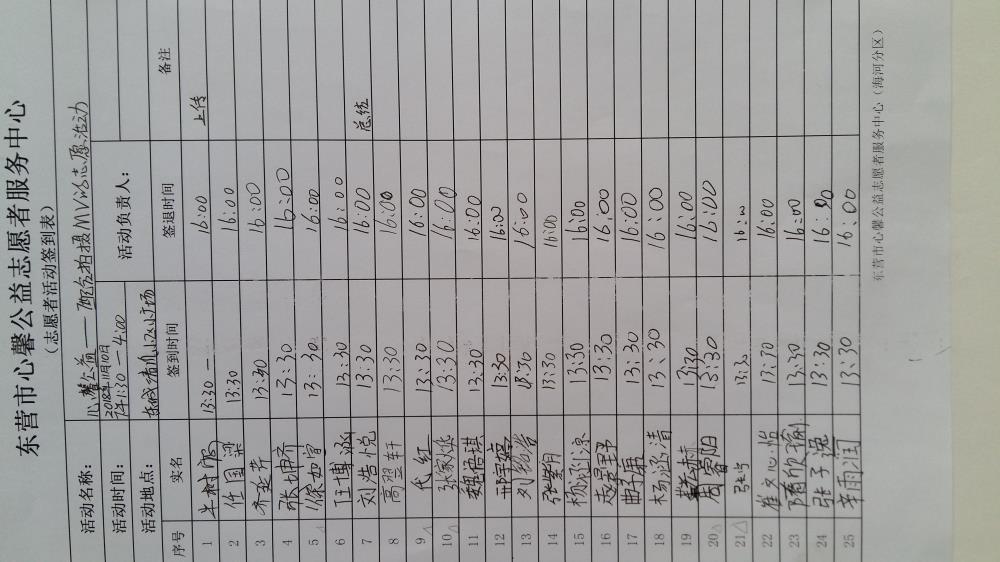 东营市心馨公益志愿者服务中心
（志愿者活动签到表）
活动名称： 心馨公益——配合拍摄MV的志愿活动
活动时间： 2018年11月10日 下午1:30—4:00 活动负责人：
活动地点： 东城清风小区小广场
序号 实名 签到时间 签退时间 备注
1 13:30 — 16:00 上传
2 任国梁 13:30 16:00
3 13:30 16:00
4 张坤济 13:30 16:00
5 徐如雪 13:30 16:00
6 任博涵 13:30 16:00
7 刘浩悦 13:30 16:00 总结
8 高翌轩 13:30 16:00
9 代红 13:30 16:00
10 张家烨 13:30 16:00
11 魏浩琪 13:30 16:00
12 邢宇婷 13:30 16:00
13 13:30 16:00
14 张紫月 13:30 16:00
15 杨涵淙 13:30 16:00
16 赵昱野 13:30 16:00
17 曲子菊 13:30 16:00
18 杨涵清 13:30 16:00
19 13:30 16:00
20 周睿阳 13:30 16:00
21 13:30 16:00
22 崔文心怡 13:30 16:00
23 隋欣瑜 13:30 16:00
24 张子逸 13:30 16:00
25 李雨润 13:30 16:00
东营市心馨公益志愿者服务中心（海河分区）